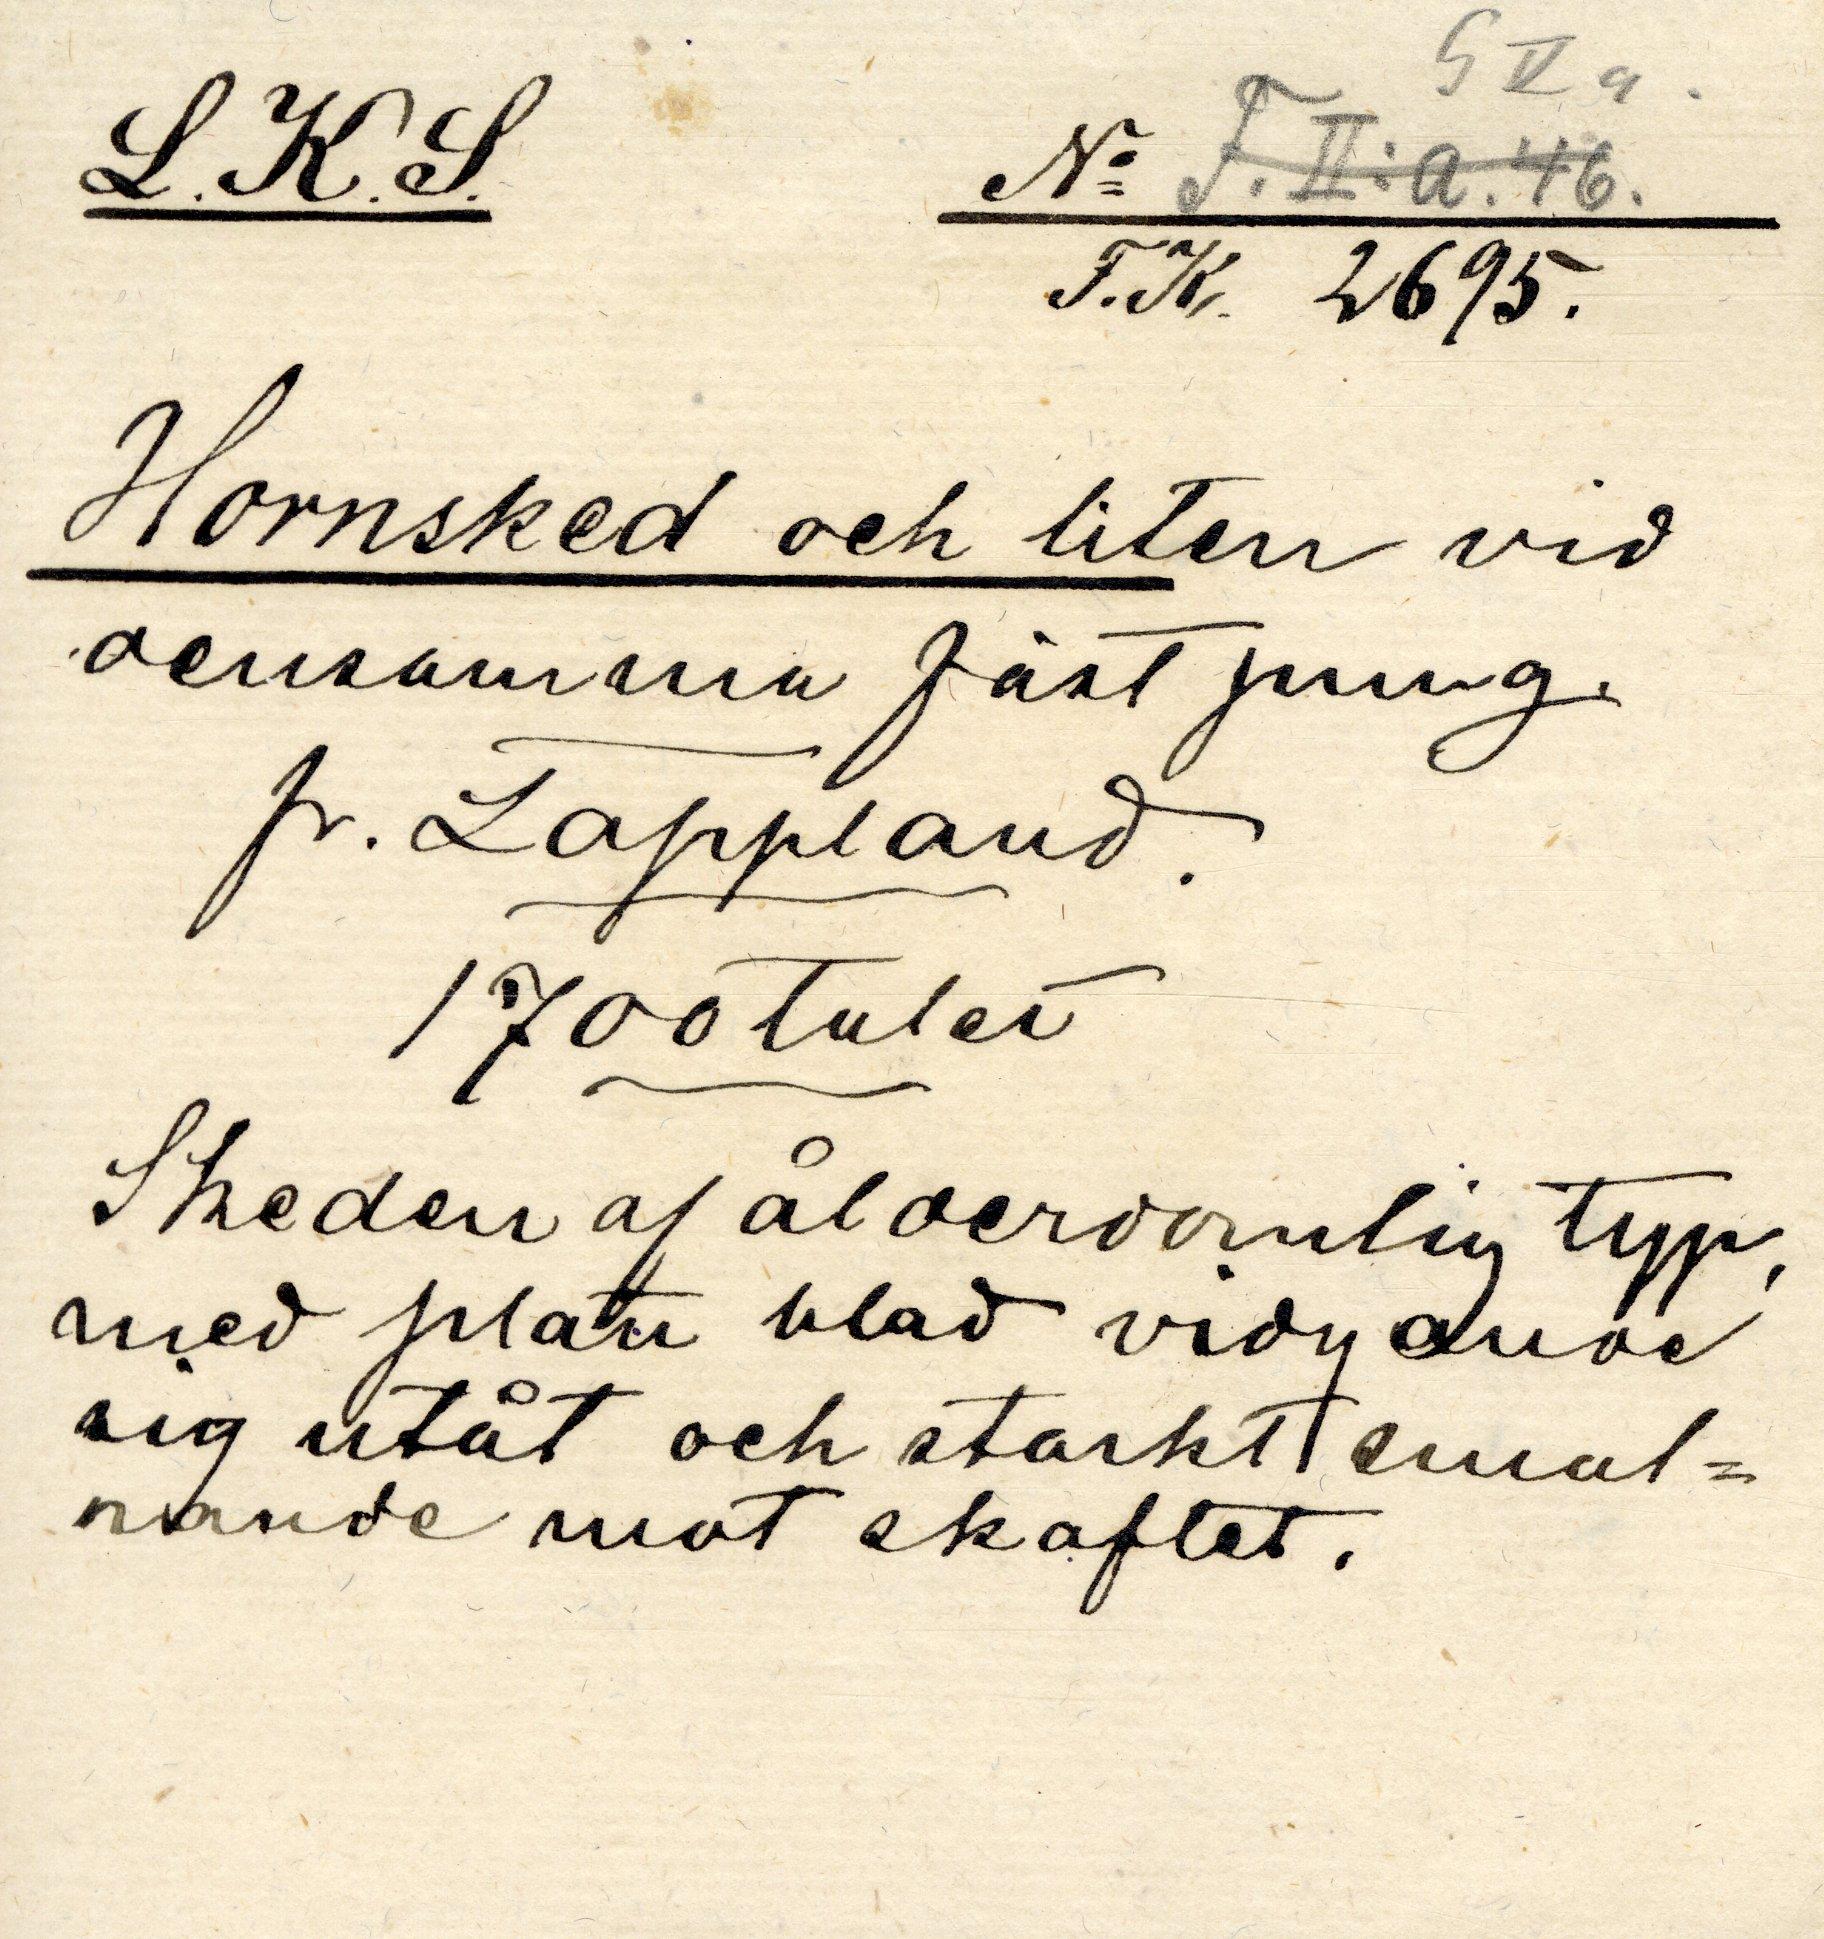 G V a.
L.K.S. No F. II: a. 46.
F.K. 2695.
Hornsked och liten vid
densamma fäst pung.
fr. Lappland.
1700talet
Skeden af ålderdomlig typ,
med plan blad vidgande
sig utåt och starkt smal=
nande mot skaftet.